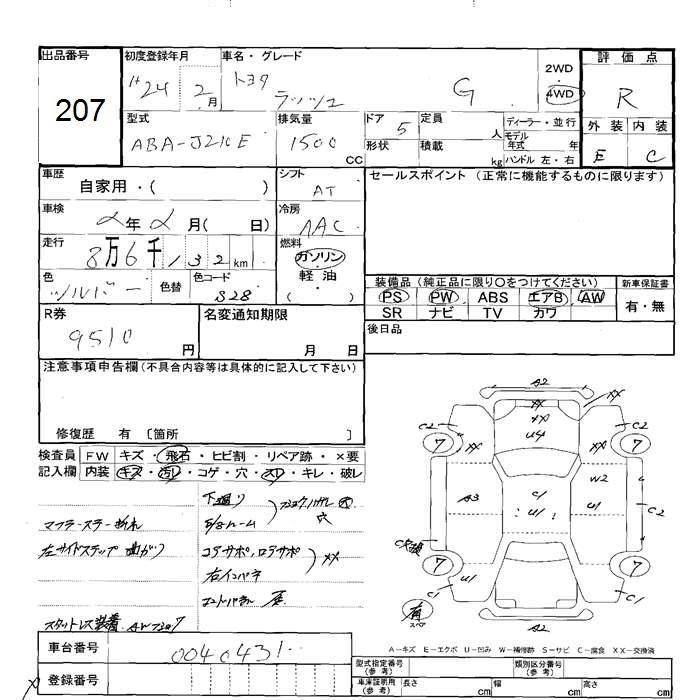 出品番号 初度登録年月 車名・グレード 2WD 4WD 評価点
207
H24 2月 トヨタ ラッシュ G R
型式 排気量 ドア 定員 ディーラー・並行 外装 内装
ABA-J210E 1500 CC 5 人 モデル年式 年 E C
形状 積載 kg ハンドル 左・右
車歴 シフト セールスポイント (正常に機能するものに限ります)
自家用・( ) AT
車検 冷房
2年2月( 日) AAC
走行 燃料
8万6千132km ガソリン
色 色替 色コード 軽油
シルバー S28 ( )
装備品 (純正品に限り○をつけてください) 新車保証書
PS PW ABS エアB AW 有・無
SR ナビ TV カワ
R券 名変通知期限 後日品
9510円 月 日
注意事項申告欄(不具合内容等は具体的に記入して下さい)
修復歴 有 〔箇所 〕
検査員 FW キズ・飛石・ヒビ割・リペア跡・×要
記入欄 内装 キズ・汚レ・コゲ・穴・スレ・キレ・破レ
下廻り
マフラーステー折れ E/gルーム 穴
左サイドステップ曲がり コアサポ,ロアサポ XX
右インパネ
スタットレス装着 AWスタッフ
車台番号 0040431
登録番号
A2
XX XX
C2 XX U4 XX C2
7 7
W2
A3 C1 U1 U1 C2
7 7
C1 U1 C1
有 スペア A2
A-キズ E-エクボ U-凹み W-補修跡 S-サビ C-腐食 XX-交換済
型式指定番号(参考) 類別区分番号(参考)
車庫証明用(参考) 長さ cm 幅 cm 高さ cm